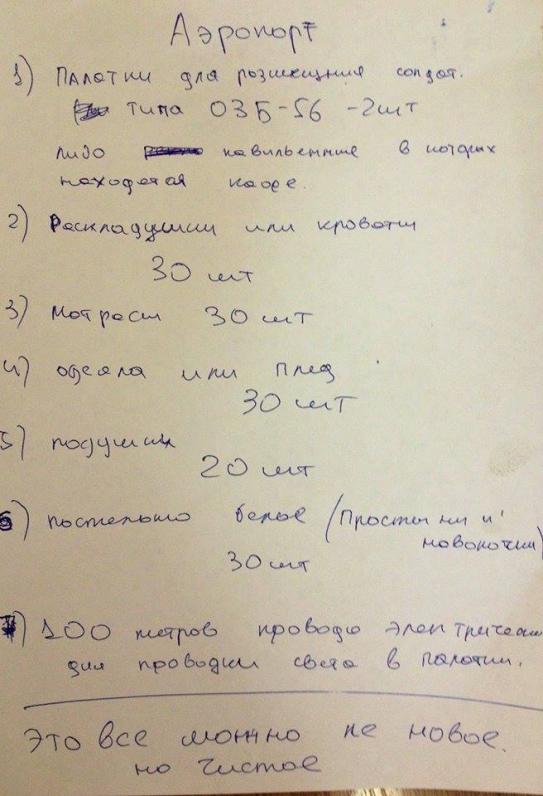 Аэропорт
1) Палатки для розмещения солдат.
типа ОЗБ-56 -2шт
либо павильенние в которых
находется кафе.
2) Раскладушки или кровати
30 шт
3) Матрасы 30 шт
4) одеяла или плед
30 шт
5) подушки
20 шт
6) постельно белье (Простыни и
новолочки)
30 шт
7) 100 метров провода электрическ
для проводки света в палатки.
Это все можно не новое.
но чистое